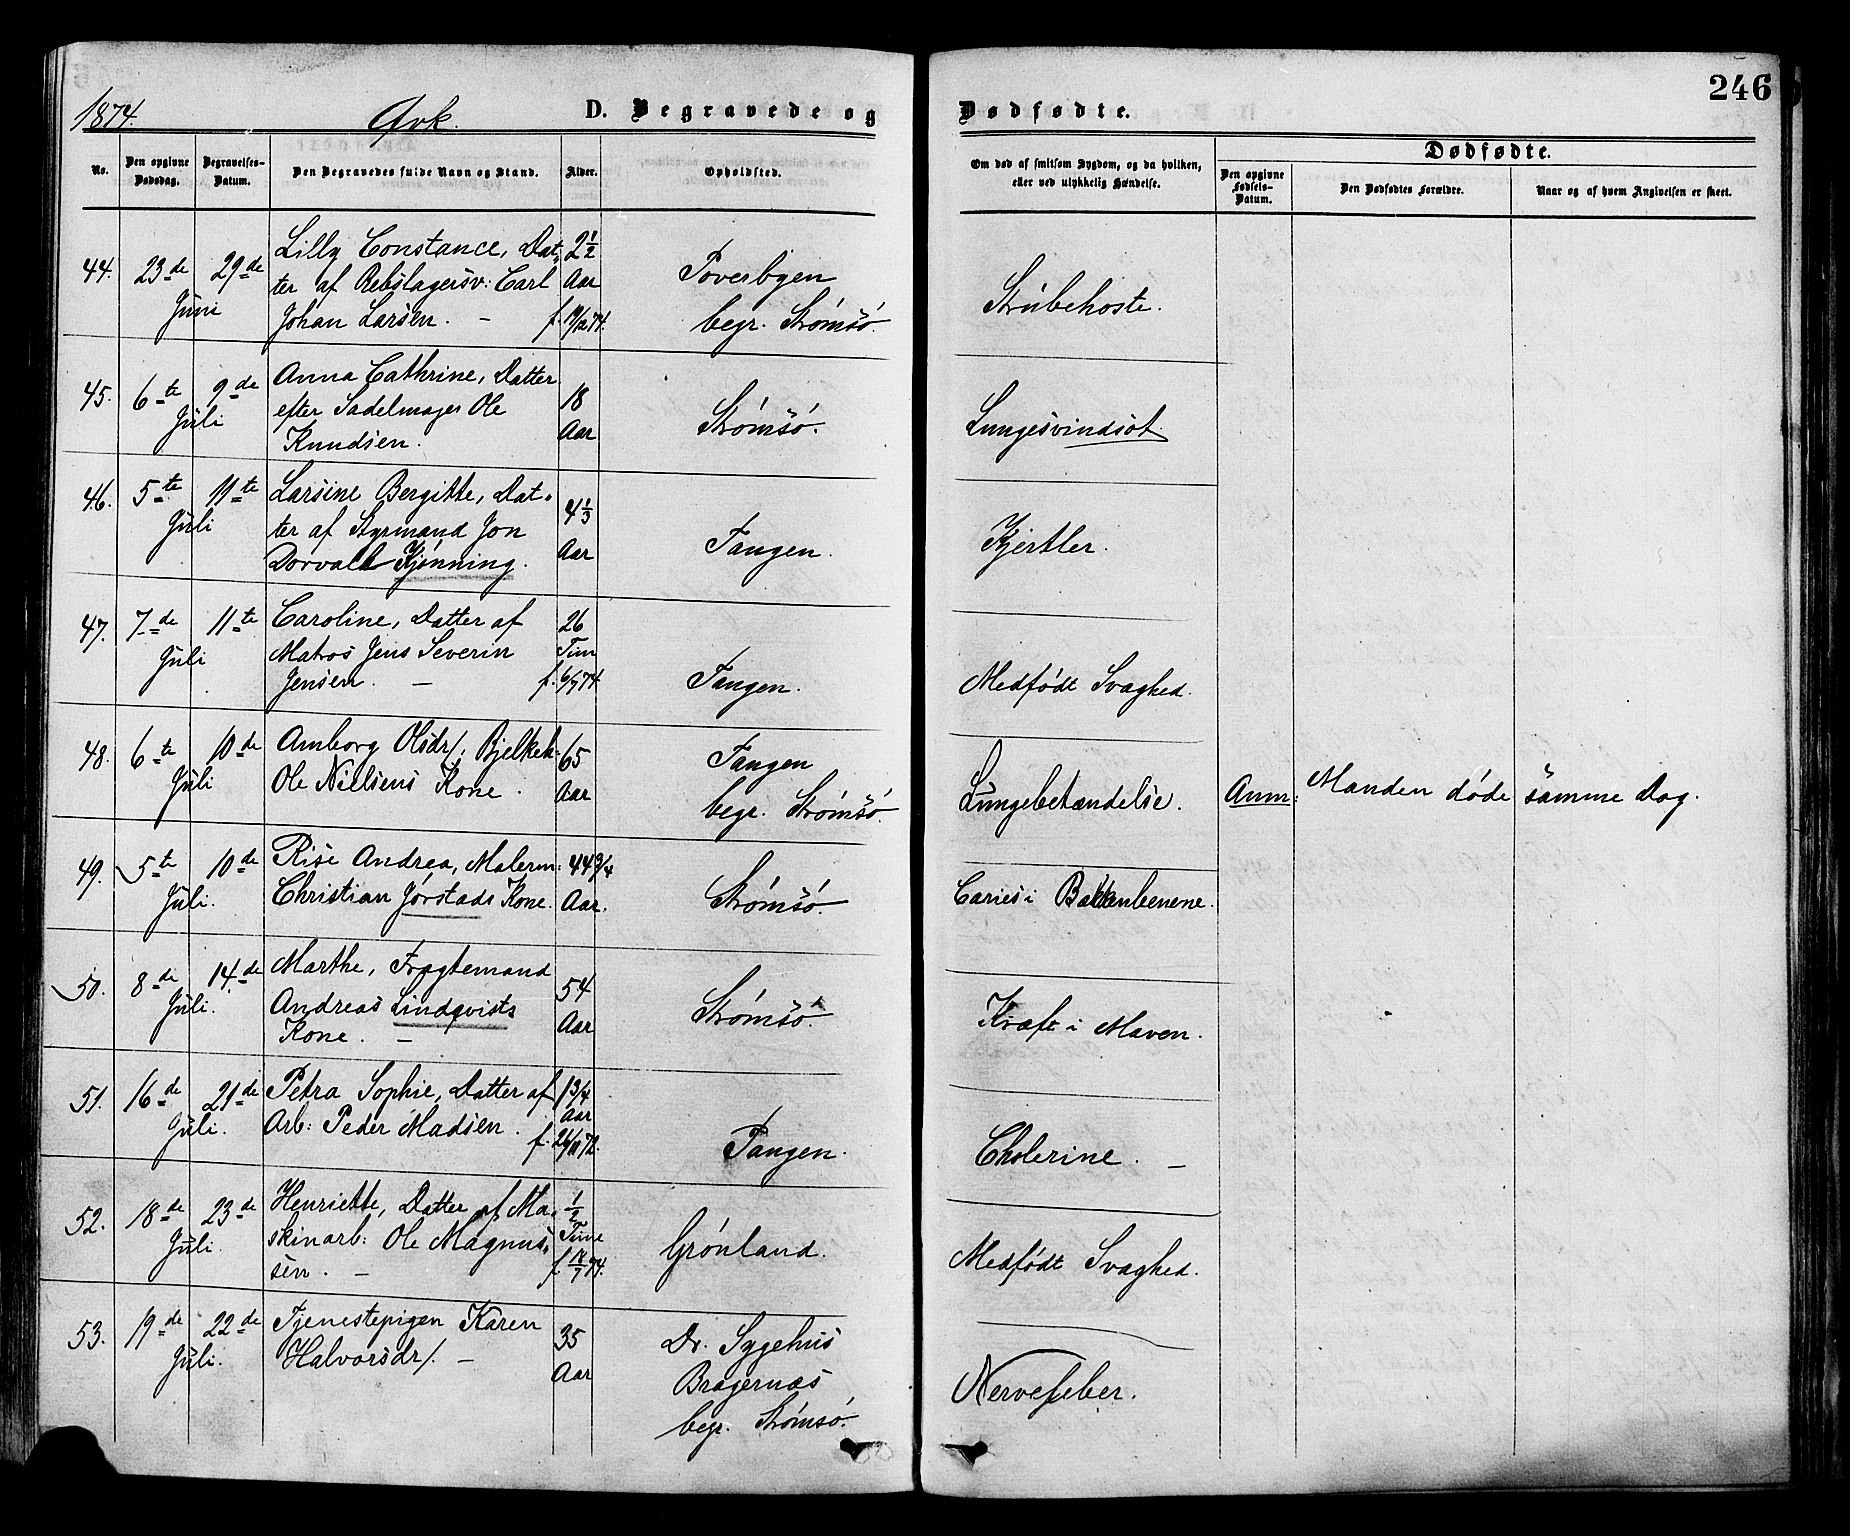 246
1874. Qvk. D. Begravede og Dødfødte.
No. Den opgivne Dødsdag. Begravelses-Datum. Den Begravedes fulde Navn og Stand. Alder. Opholdsted. Om død af smitsom Sygdom, og da hvilken, eller ved ulykkelig Hændelse. Dødfødte.
Den opgivne Fødsels-Datum. Den Dødfødtes Forældre. Naar og af hvem Angivelsen er skeet.
44. 23de 29de Lilly Constance, Dat- 2 1/2
Juni ter af Rebslagersv: Carl Aar Toverbyen Strubehoste.
Johan Larsen. – f. 19/12 74. begr. Strømsø.
45. 6te 9de Anna Cathrine, Datter 18
Juli efter Sadelmager Ole Aar Strømsø. Lungesvindsot.
Knudsen.
46. 5te 11te Larsine Bergitte, Dat- 4 1/3
Juli ter af Styrmand Jon Aar Tangen. Kjertler.
Dorvald Kjønning.
47. 7de 11te Caroline, Datter af 26
Juli Matros Jens Severin Tim Tangen. Medfødt Svaghed.
Jensen. – f. 6/7 74.
48. 6te 10de Amborg Olsdr/. Bjelkeh: 65 Tangen
Juli Ole Nielsens Kone. Aar begr. Strømsø. Lungebetændelse. Anm: Manden døde samme Dag.
49. 5te 10de Rise Andrea, Malerm: 44 3/4
Juli. Christian Jørstads Kone. Aar. Strømsø. Caries i Bækkenbenene.
50. 8de 14de Marthe, Fragtemand 54
Juli. Andreas Lindqvists Aar Strømsø. Kræft i Maven.
Kone. –
51. 16de 21de Petra Sophie, Datter af 1 3/4 Aar
Juli. Arb: Peder Madsen. f. 26/11 72. Tangen. Cholerine. –
52. 18de 23de Henriette, Datter af Ma- 1/2
Juli. skinarb: Ole Magnus- Time Grønland. Medfødt Svaghed.
sen. – f. 18/7 74.
53. 19de 22de Tjenestepigen Karen 35 Dr. Sygehus
Juli. Halvorsdr/. – Aar Bragernæs Nervefeber.
begr. Strømsø.